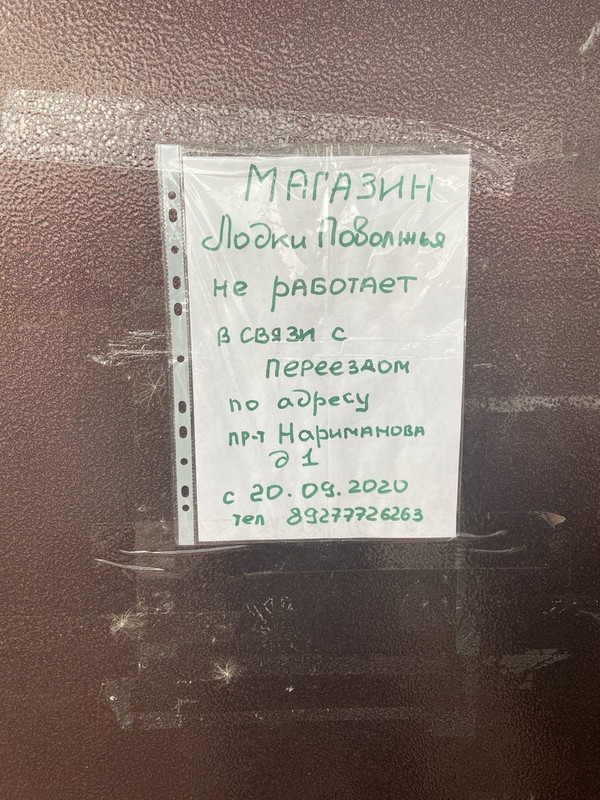 МАГАЗИН
Лодки Поволжья
не работает
в связи с
переездом
по адресу
пр-т Нариманова
д 1
с 20.09.2020
тел 89277726263